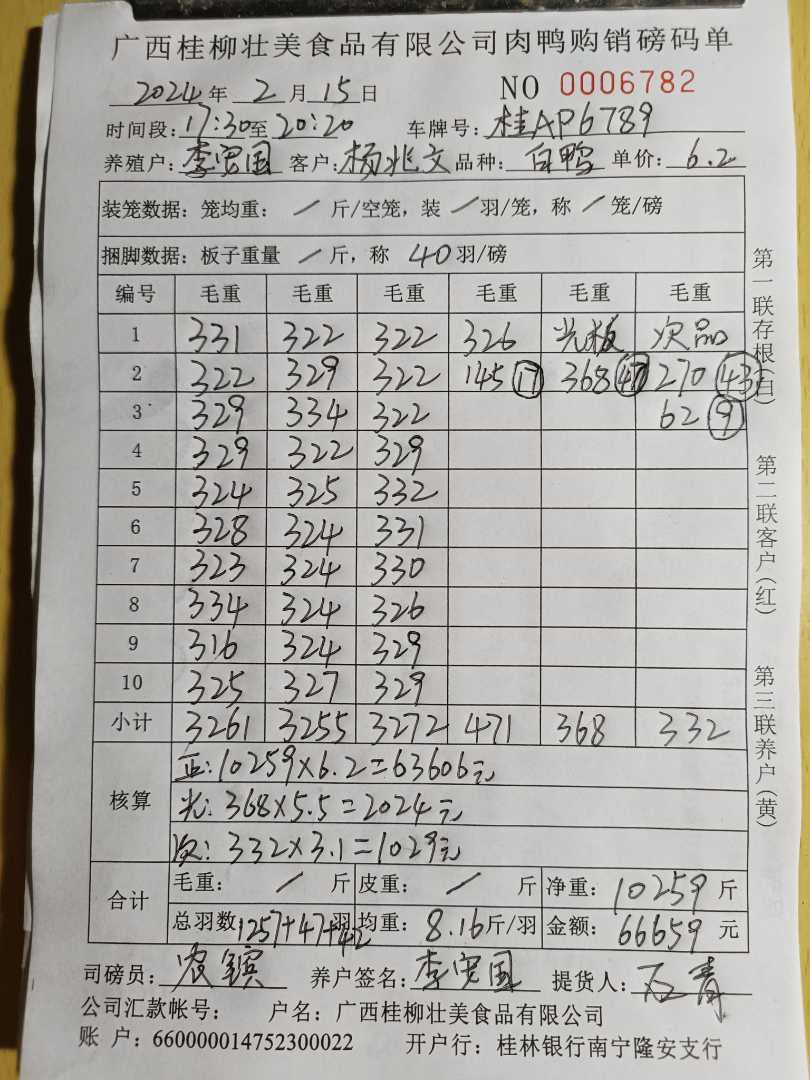 广西桂柳壮美食品有限公司肉鸭购销磅码单
2024年2月15日 NO 0006782
时间段:17:30至20:20 车牌号:桂AP6789
养殖户:李宽国 客户:杨兆文 品种:白鸭 单价:6.2
装笼数据:笼均重: / 斤/空笼,装 / 羽/笼,称 / 笼/磅
捆脚数据:板子重量 / 斤,称 40 羽/磅
编号 毛重 毛重 毛重 毛重 毛重 毛重
1 331 322 322 326 光板 次品
2 322 329 322 145 17 368 47 270 43
3 329 334 322 62 9
4 329 322 329
5 324 325 332
6 328 324 331
7 323 324 330
8 334 324 326
9 316 324 329
10 325 327 329
小计 3261 3255 3272 471 368 332
核算
正:10259×6.2=63606元
光:368×5.5=2024元
次:332×3.1=1029元
合计
毛重: / 斤 皮重: / 斤 净重:10259斤
总羽数1257+47+42羽 均重:8.16斤/羽 金额:66659元
司磅员:农 养户签名:李宽国 提货人:石青
公司汇款帐号: 户名:广西桂柳壮美食品有限公司
账 户:660000014752300022 开户行:桂林银行南宁隆安支行
第一联存根(白) 第二联客户(红) 第三联养户(黄)